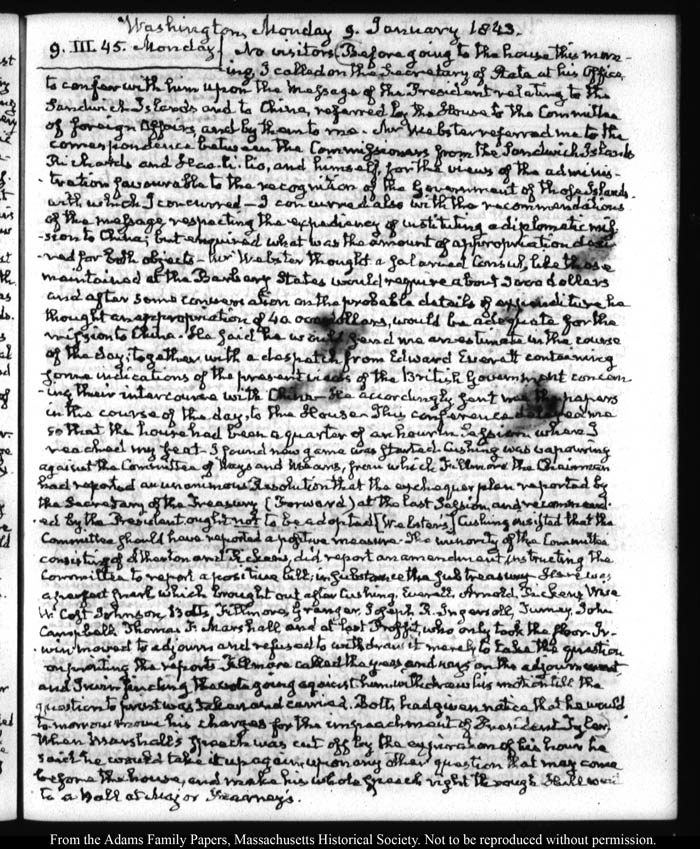 Washington, Monday 9. January 1843.
9. III. 45. Monday No visitors Before going to the house this morn-
ing, I called on the Secretary of State at his Office,
to confer with him upon the Message of the President relating to the
Sandwich Islands and to China, referred by the House to the Committee
of foreign Affairs, and by them to me. Mr Webster referred me to the
correspondence between the Commissioners from the Sandwich Islands
Richards and Haalilio, and himself, for the views of the adminis-
tration favourable to the recognition of the Government of those Islands.
with which I concurred — I concurred also with the recommendations
of the message respecting the expediency of instituting a diplomatic mis-
sion to China; but enquired what was the amount of appropriation desi-
red for both objects — Mr Webster thought a salaried Consul, like those
maintained at the Barbary States would require about 3000 dollars
and after some conversation on the probable details of expenditure he
thought an appropriation of 40 000 dollars, would be adequate for the
mission to China. He said he would send me an estimate in the course
of the day, together with a despatch from Edward Everett containing
some indications of the present views of the British Government concern-
ing their intercourse with China. He accordingly sent me the papers
in the course of the day, to the House. This conference detained me
so that the house had been a quarter of an hour in Session when I
reached my seat. I found new game was started. Cushing was vapouring
against the Committee of Ways and Means, from which Fillmore the Chairman
had reported an unanimous Resolution that the exchequer plan reported by
the Secretary of the Treasury (Forward) at the last Session, and recommend-
ed by the President, ought not to be adopted [Websters] Cushing insisted that the
Committee should have reported a positive measure. The minority of the Committee
consisting of Atherton and Pickens, did report an amendment instructing the
Committee to report a positive bill, in substance the sub treasury. Here was
a perfect snarl which brought out after Cushing, Everett, Arnold, Pickens, Wise
W. Cost Johnson, Botts, Fillmore, Granger, Joseph R. Ingersoll, Turney, John
Campbell, Thomas F. Marshall and at last Proffit, who only took the floor. Ir-
win moved to adjourn and refused to withdraw it merely to take the question
on printing the reports. Fillmore called the yeas and nays on the adjournment,
and Irwin finding the vote going against him withdrew his motion till the
question to print was taken and carried. Botts had given notice that he would
to-morrow move his charges for the impeachment of President Tyler.
When Marshall's speech was cut off by the expiration of his hour he
said he would take it up again, upon any other question that may come
before the house, and make his whole speech right through. Hall went
to a Ball at Major Kearney's.
From the Adams Family Papers, Massachusetts Historical Society. Not to be reproduced without permission.